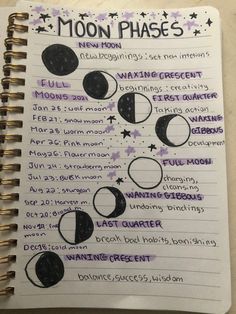 MOON PHASES
NEW MOON
new beginnings : set new intentions
FULL
MOONS
WAXING CRESCENT
beginnings : creativity
FIRST QUARTER
Taking action
WAXING
GIBBOUS
development
Jan 28: wolf moon
FEB 27: snow moon
Mar 28: worm moon
Apr 26: Pink moon
May 26: Flower moon
Jun 24: strawberry moon
Jul 23: BUCK moon
Aug 22: sturgeon
Sep 20: Harvest m.
Oct 20:
moon
Dec 18: cold moon
FULL MOON
charging,
cleansing
WANING GIBBOUS
undoing bindings
LAST QUARTER
break bad habits, banishing
WANING CRESCENT
balance, success, wisdom